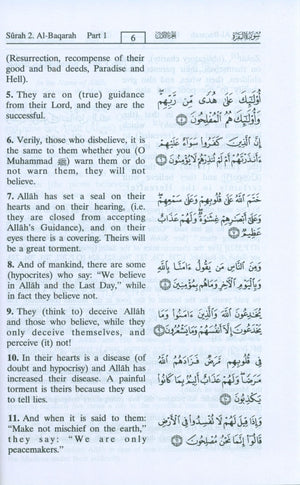 Sûrah 2. Al-Baqarah Part 1 6 سورة البقرة
(Resurrection, recompense of their
good and bad deeds, Paradise and
Hell).
5. They are on (true) guidance
from their Lord, and they are the
successful.
أُوْلَٰٓئِكَ عَلَىٰ هُدًى مِّن رَّبِّهِمْ
وَأُوْلَٰٓئِكَ هُمُ ٱلْمُفْلِحُونَ
6. Verily, those who disbelieve, it is
the same to them whether you (O
Muhammad ﷺ) warn them or do
not warn them, they will not
believe.
إِنَّ ٱلَّذِينَ كَفَرُوا۟ سَوَآءٌ عَلَيْهِمْ
ءَأَنذَرْتَهُمْ أَمْ لَمْ تُنذِرْهُمْ لَا يُؤْمِنُونَ
7. Allâh has set a seal on their
hearts and on their hearing, (i.e.
they are closed from accepting
Allâh's Guidance), and on their
eyes there is a covering. Theirs will
be a great torment.
خَتَمَ ٱللَّهُ عَلَىٰ قُلُوبِهِمْ وَعَلَىٰ سَمْعِهِمْ
وَعَلَىٰٓ أَبْصَٰرِهِمْ غِشَٰوَةٌ وَلَهُمْ عَذَابٌ
عَظِيمٌ
8. And of mankind, there are some
(hypocrites) who say: "We believe
in Allâh and the Last Day," while
in fact they believe not.
وَمِنَ ٱلنَّاسِ مَن يَقُولُ ءَامَنَّا بِٱللَّهِ
وَبِٱلْيَوْمِ ٱلْءَاخِرِ وَمَا هُم بِمُؤْمِنِينَ
9. They (think to) deceive Allâh
and those who believe, while they
only deceive themselves, and
perceive (it) not!
يُخَٰدِعُونَ ٱللَّهَ وَٱلَّذِينَ ءَامَنُوا۟ وَمَا
يَخْدَعُونَ إِلَّآ أَنفُسَهُمْ وَمَا يَشْعُرُونَ
10. In their hearts is a disease (of
doubt and hypocrisy) and Allâh has
increased their disease. A painful
torment is theirs because they used
to tell lies.
فِى قُلُوبِهِم مَّرَضٌ فَزَادَهُمُ ٱللَّهُ
مَرَضًا وَلَهُمْ عَذَابٌ أَلِيمٌۢ بِمَا كَانُوا۟
يَكْذِبُونَ
11. And when it is said to them:
"Make not mischief on the earth,"
they say: "We are only
peacemakers."
وَإِذَا قِيلَ لَهُمْ لَا تُفْسِدُوا۟ فِى ٱلْأَرْضِ
قَالُوٓا۟ إِنَّمَا نَحْنُ مُصْلِحُونَ